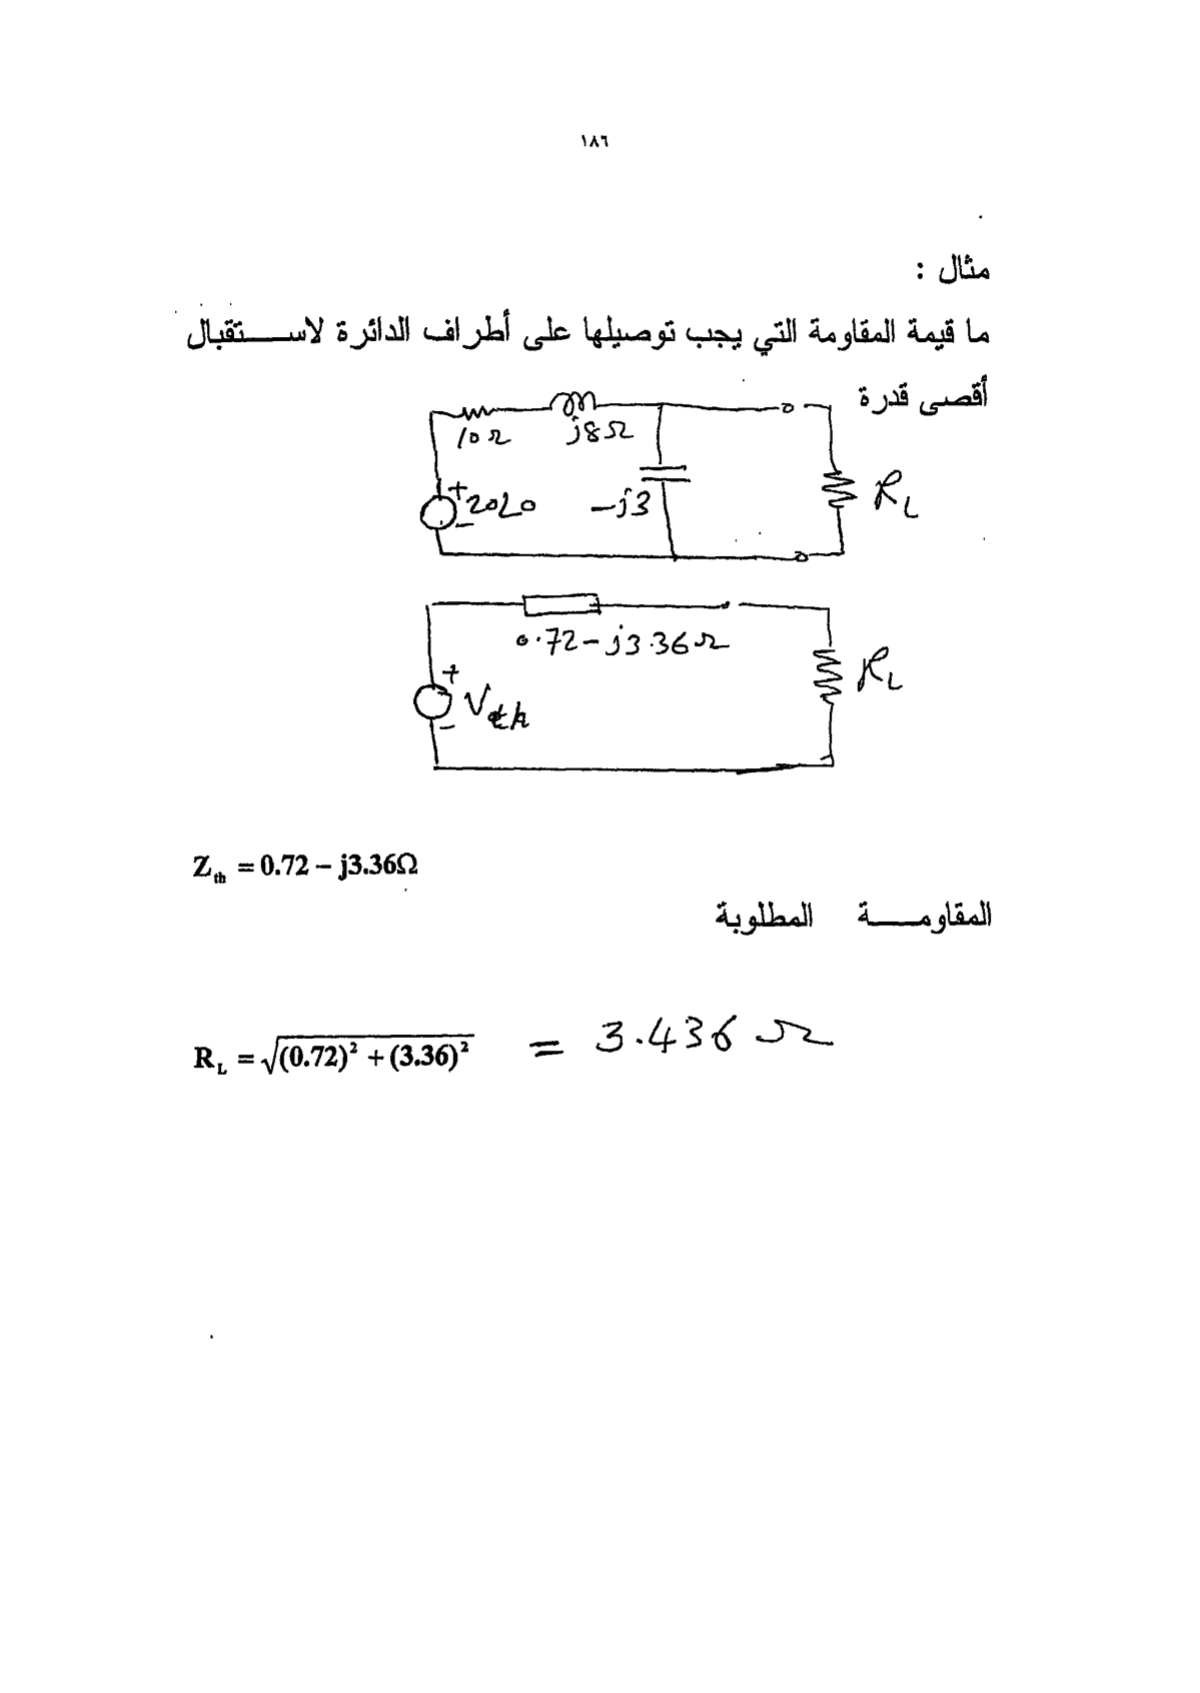 ١٨٦
مثال :
ما قيمة المقاومة التي يجب توصيلها على أطراف الدائرة لاستقبال
أقصى قدرة
10Ω j8Ω
+ 20∠0 -j3 R_L
-
0.72-j3.36Ω
+ V_th R_L
-
Z_th = 0.72 – j3.36Ω
المقاومة المطلوبة
R_L = √(0.72)² + (3.36)² = 3.436 Ω